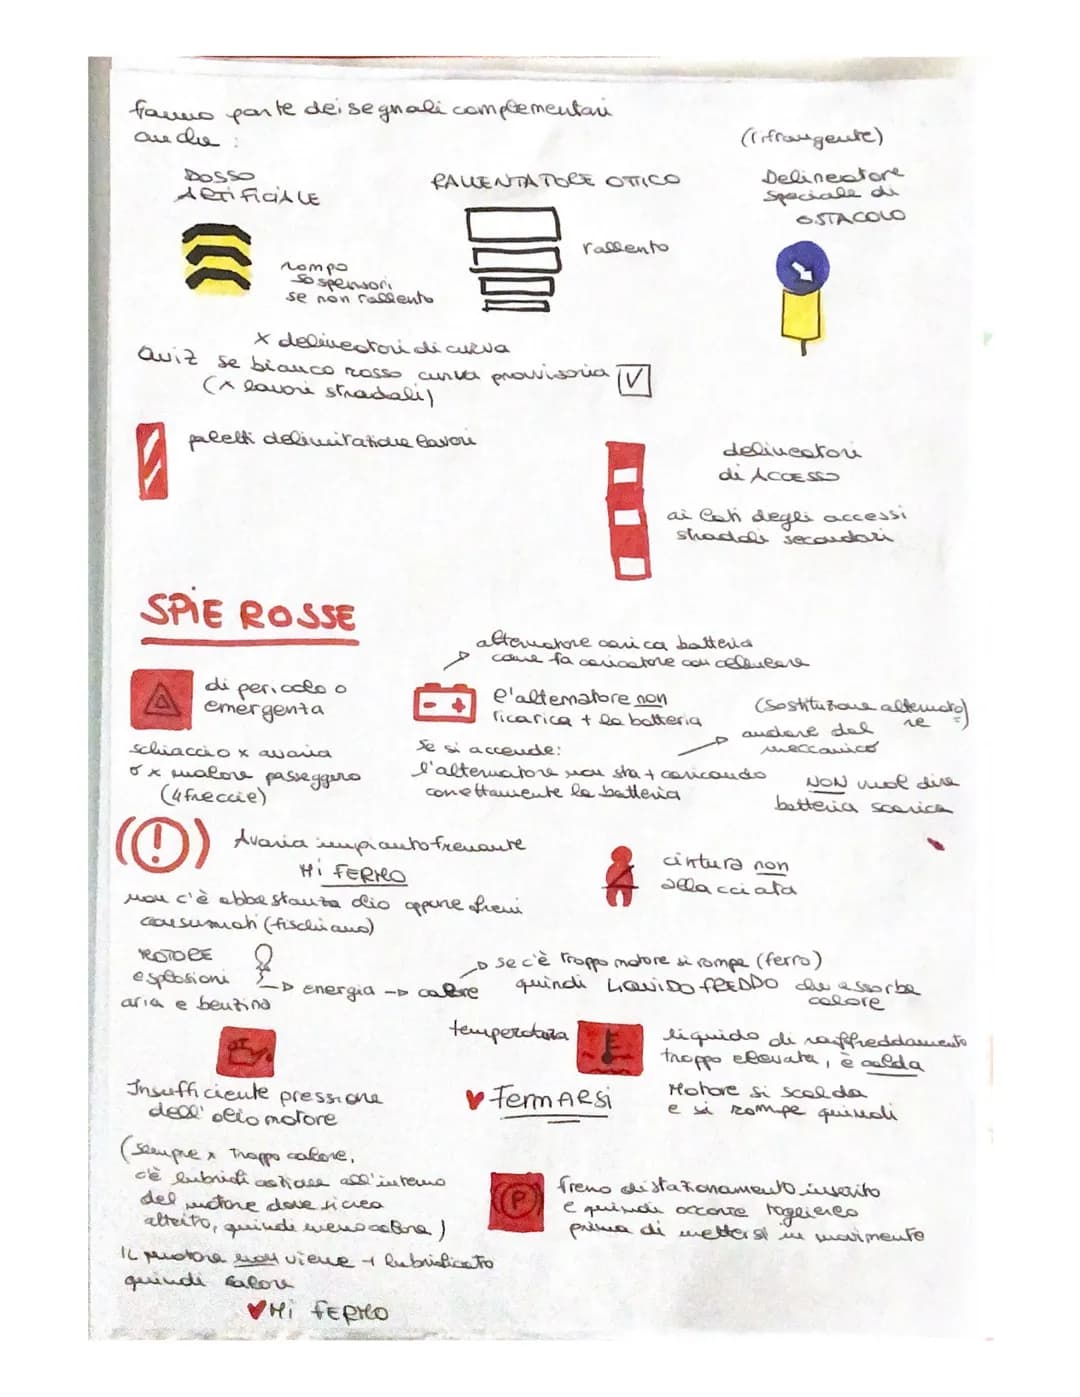 fanno parte dei segnali complementari
anche :
(rifrangente)
DOSSO
ARTIFICIALE
RALLENTATORE OTTICO
Delineatore
speciale di
OSTACOLO
rallento
rompo
sospensori
se non rallento
x delineatori di curva
Quiz se bianco rosso curva provvisoria ✓
(x lavori stradali)
paletti delimitazione lavori
delineatori
di ACCESSO
ai lati degli accessi
stradali secondari
SPIE ROSSE
alternatore carica batteria
come fa caricatore con cellulare
di pericolo o
emergenza
- +
l'alternatore non
ricarica + la batteria
(sostituzione alternato
re =)
andare dal
meccanico
schiaccio x avaria
o x malore passeggero
(4 freccie)
se si accende:
l'alternatore non sta + caricando
correttamente la batteria
NON vuol dire
batteria scarica
(!)
Avaria impianto frenante
Mi FERMO
non c'è abbastanza olio oppure freni
consumati (fischiano)
cintura non
allacciata
MOTORE
esplosioni
aria e benzina
energia → calore
se c'è troppo motore si rompe (ferro)
quindi LIQUIDO FREDDO che assorbe
calore
temperatura
liquido di raffreddamento
troppo elevata, è calda
Motore si scalda
e si rompe quindi
♥ FERMARSI
Insufficiente pressione
dell'olio motore
(sempre x troppo calore,
c'è lubrificazione all'interno
del motore dove si crea
attrito, quindi meno calore)
IL motore non viene + lubrificato
quindi calore
♥ Mi FERMO
P
freno di stazionamento inserito
e quindi occorre toglierlo
prima di mettersi in movimento